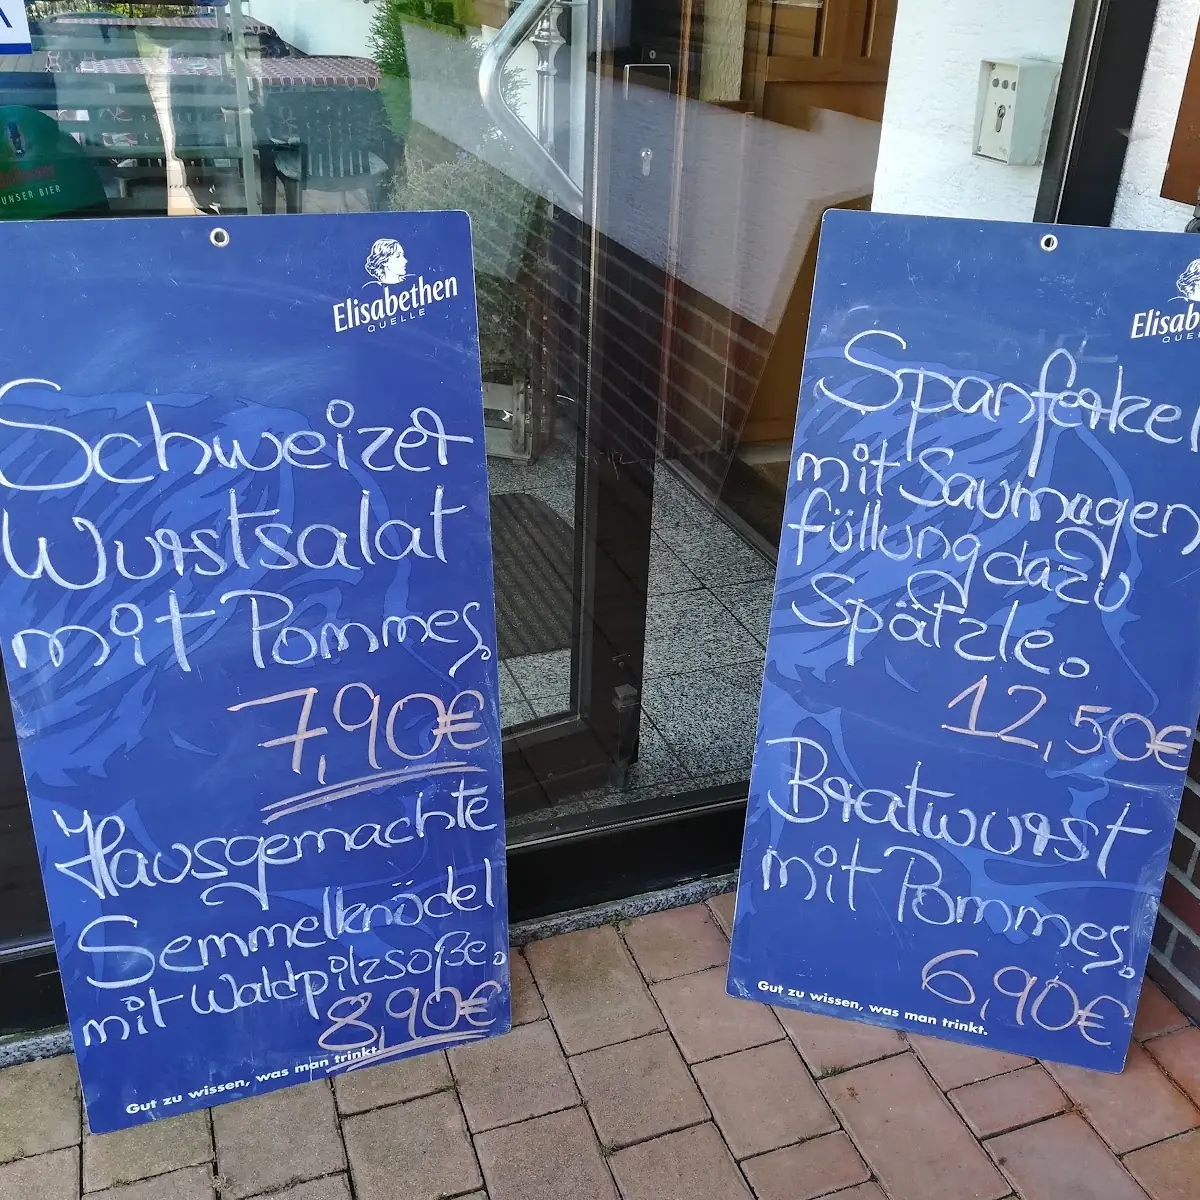 UNSER BIER
Elisabethen
QUELLE
Schweizer
Wurstsalat
mit Pommes.
7,90€
Hausgemachte
Semmelknödel
mit Waldpilzsoße.
8,90€
Gut zu wissen, was man trinkt.
Elisabe
QUE
Spanferkel
mit Saumagen
füllung dazu
Spätzle.
12,50€
Bratwurst
mit Pommes.
6,90€
Gut zu wissen, was man trinkt.